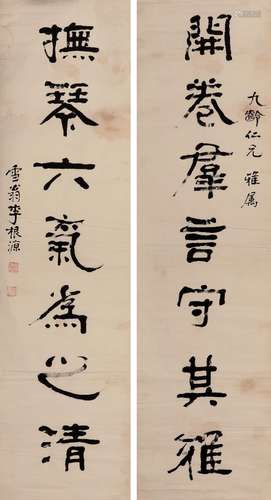 開卷群言守其雅
九齡仁兄雅属
撫琴六氣為之清
雪翁李根源